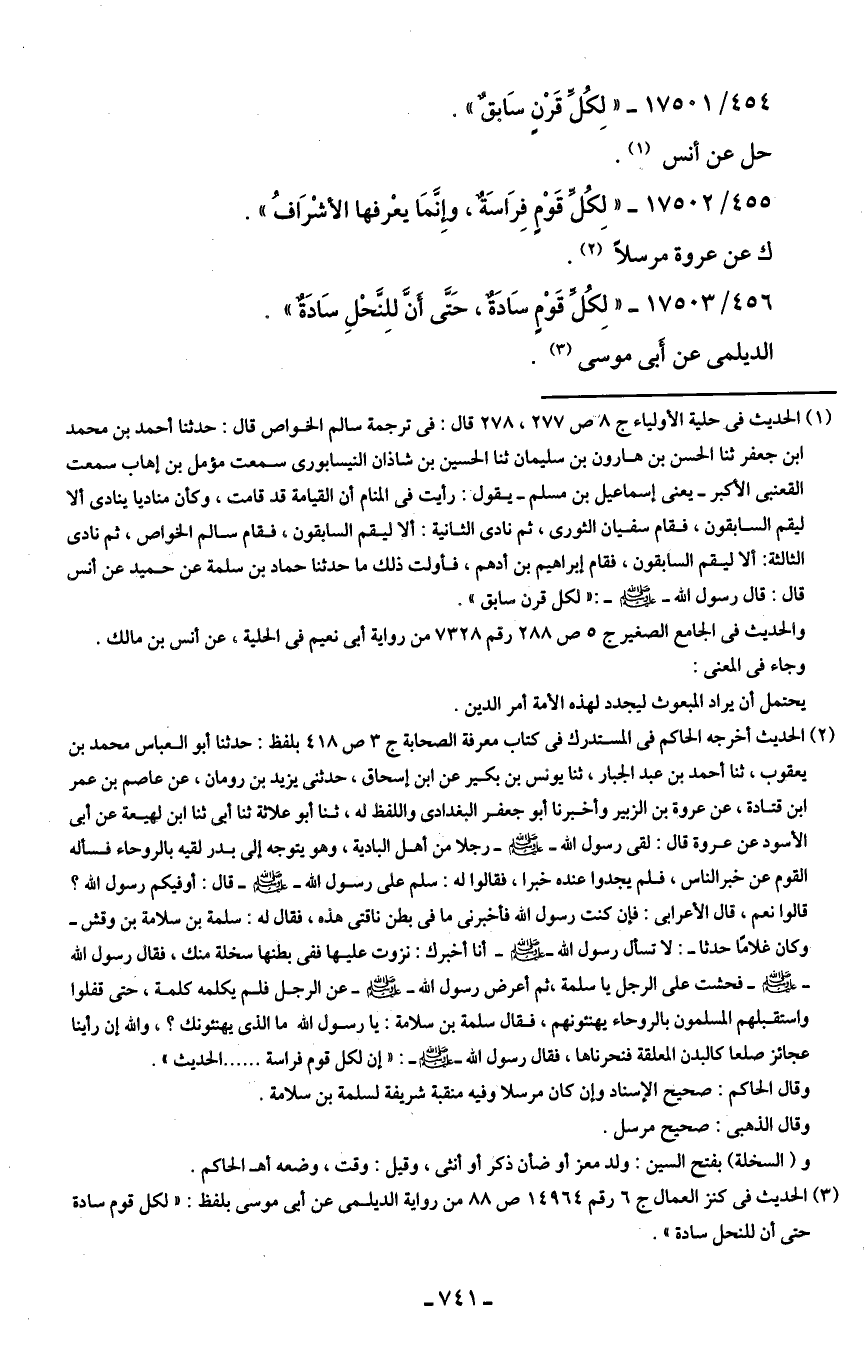 ٤٥٤/ ١٧٥٠١ ـ « لِكُلِّ قَرْنٍ سَابقٌ » .
حل عن أنس (١) .
٤٥٥/ ١٧٥٠٢ ـ « لِكُلِّ قَوْمٍ فِرَاسَةٌ ، وإِنَّمَا يعْرِفها الأشْرَافُ » .
ك عن عروة مرسلاً (٢) .
٤٥٦/ ١٧٥٠٣ ـ « لِكُلِّ قَوْمٍ سادَةٌ ، حَتَّى أَنَّ لِلنَّحْلِ سَادَةٌ » .
الديلمى عن أَبى موسى (٣) .
(١) الحديث فى حلية الأولياء ج ٨ ص ٢٧٧ ، ٢٧٨ قال : فى ترجمة سالم الخواص قال : حدثنا أحمد بن محمد
ابن جعفر ثنا الحسن بن هارون بن سليمان ثنا الحسين بن شاذان النيسابورى سمعت مؤمل بن إهاب سمعت
القعنبى الأكبر ـ يعنى إسماعيل بن مسلم ـ يقول : رأيت فى المنام أن القيامة قد قامت ، وكأن مناديا ينادى ألا
ليقم السابقون ، فقام سفيان الثورى ، ثم نادى الثانية : ألا ليقم السابقون ، فقام سالم الخواص ، ثم نادى
الثالثة: ألا ليقم السابقون ، فقام إبراهيم بن أدهم ، فأولت ذلك ما حدثنا حماد بن سلمة عن حميد عن أنس
قال : قال رسول الله ـ ﷺ ـ :« لكل قرن سابق » .
والحديث فى الجامع الصغير ج ٥ ص ٢٨٨ رقم ٧٣٢٨ من رواية أبى نعيم فى الحلية ، عن أنس بن مالك .
وجاء فى المعنى :
يحتمل أن يراد المبعوث ليجدد لهذه الأمة أمر الدين .
(٢) الحديث أخرجه الحاكم فى المستدرك فى كتاب معرفة الصحابة ج ٣ ص ٤١٨ بلفظ : حدثنا أبو العباس محمد بن
يعقوب ، ثنا أحمد بن عبد الجبار ، ثنا يونس بن بكير عن ابن إسحاق ، حدثنى يزيد بن رومان ، عن عاصم بن عمر
ابن قتادة ، عن عروة بن الزبير وأخبرنا أبو جعفر البغدادى واللفظ له ، ثنا أبو علاثة ثنا أبى ثنا ابن لهيعة عن أبى
الأسود عن عروة قال : لقى رسول الله ـ ﷺ ـ رجلا من أهل البادية ، وهو يتوجه إلى بدر لقيه بالروحاء فسأله
القوم عن خبرالناس ، فلم يجدوا عنده خبرا ، فقالوا له : سلم على رسول الله ـ ﷺ ـ قال : أوفيكم رسول الله ؟
قالوا نعم ، قال الأعرابى : فإن كنت رسول الله فأخبرنى ما فى بطن ناقتى هذه ، فقال له : سلمة بن سلامة بن وقش ـ
وكان غلامًا حدثا ـ : لا تسأل رسول الله ـ ﷺ ـ أنا أخبرك : نزوت عليها ففى بطنها سخلة منك ، فقال رسول الله
ـ ﷺ ـ فحشت على الرجل يا سلمة ،ثم أعرض رسول الله ـ ﷺ ـ عن الرجل فلم يكلمه كلمة ، حتى قفلوا
واستقبلهم المسلمون بالروحاء يهنئونهم ، فقال سلمة بن سلامة : يا رسول الله ما الذى يهنئونك ؟ ، والله إن رأينا
عجائز صلعا كالبدن المعلقة فنحرناها ، فقال رسول الله ـ ﷺ ـ : « إن لكل قوم فراسة ......الحديث » .
وقال الحاكم : صحيح الإسناد وإن كان مرسلا وفيه منقبة شريفة لسلمة بن سلامة .
وقال الذهبى : صحيح مرسل .
و ( السخلة) بفتح السين : ولد معز أو ضأن ذكر أو أنثى ، وقيل : وقت ، وضعه أهـ الحاكم .
(٣) الحديث فى كنز العمال ج ٦ رقم ١٤٩٦٤ ص ٨٨ من رواية الديلمى عن أبى موسى بلفظ : « لكل قوم سادة
حتى أن للنحل سادة » .
ـ ٧٤١ ـ